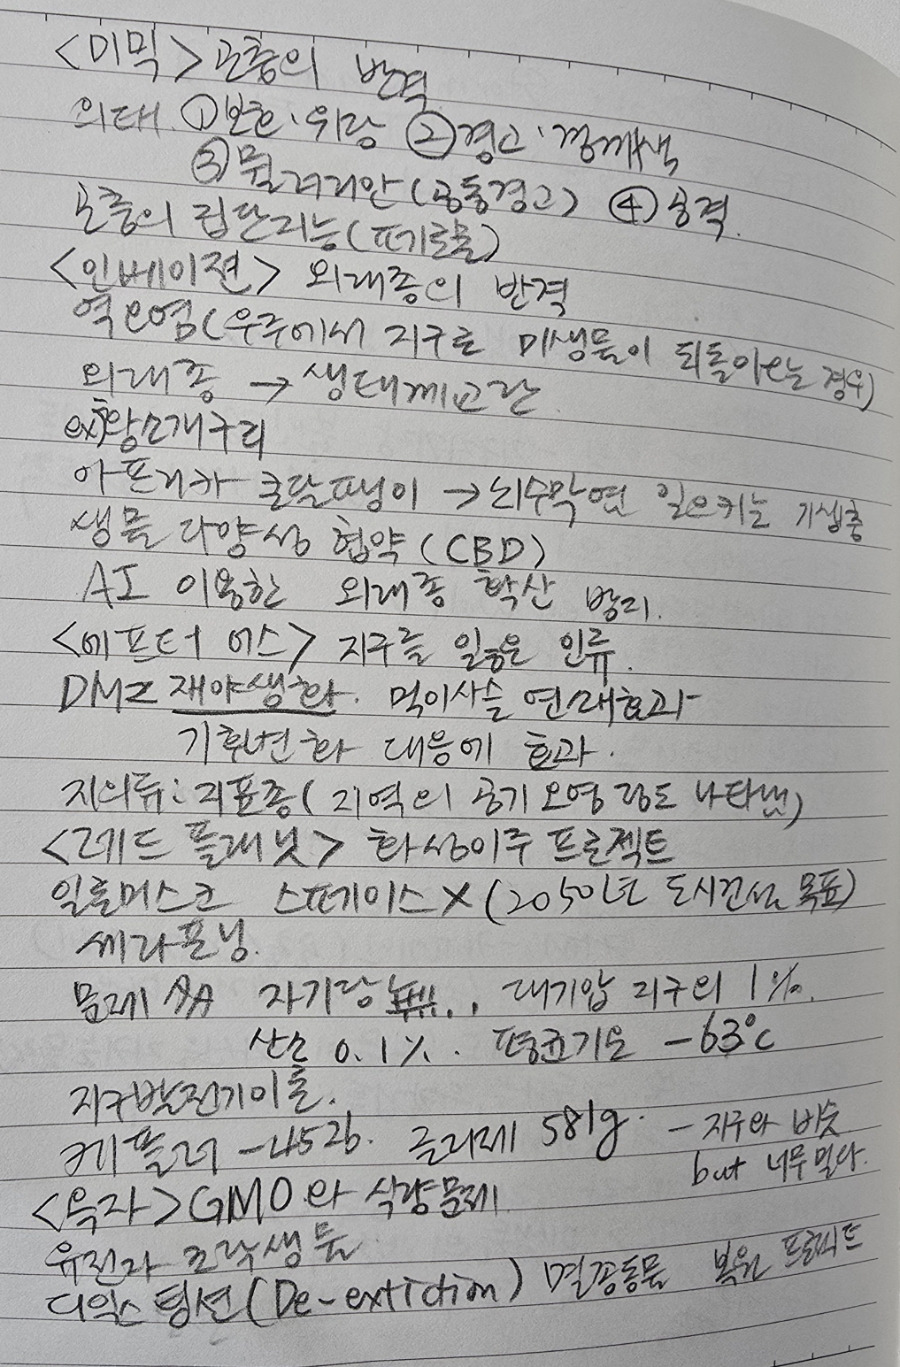 <미믹> 곤충의 반격
의태. ① 보호·위장 ② 경고·경계색
③ 뮐러리안(공통경고) ④ 공격.
곤충의 집단지능(페로몬)
<인베이젼> 외래종의 반격
역오염(우주에서 지구로 미생물이 되돌아오는 경우)
외래종 → 생태계교란
ex) 황소개구리
아프리카 큰달팽이 → 뇌수막염 일으키는 기생충
생물 다양성 협약(CBD)
AI 이용한 외래종 확산 방지.
<에프터 어스> 지구를 잃은 인류.
DMZ 재야생화. 먹이사슬 연쇄효과
기후변화 대응에 효과.
지의류: 지표종(지역의 공기 오염 정도 나타냄)
<레드 플래닛> 화성이주 프로젝트
일론머스크 스페이스X (2050년 도시건설 목표)
테라포밍.
문제 산적 자기장 無., 대기압 지구의 1%.
산소 0.1%. 평균기온 -63°C
지자발전기이론.
케플러 -452b. 글리제 581g. - 지구와 비슷
but 너무 멀다.
<옥자> GMO와 식량문제
유전자 조작생물
디익스팅션(De-extidion) 멸종동물 복원 프로젝트